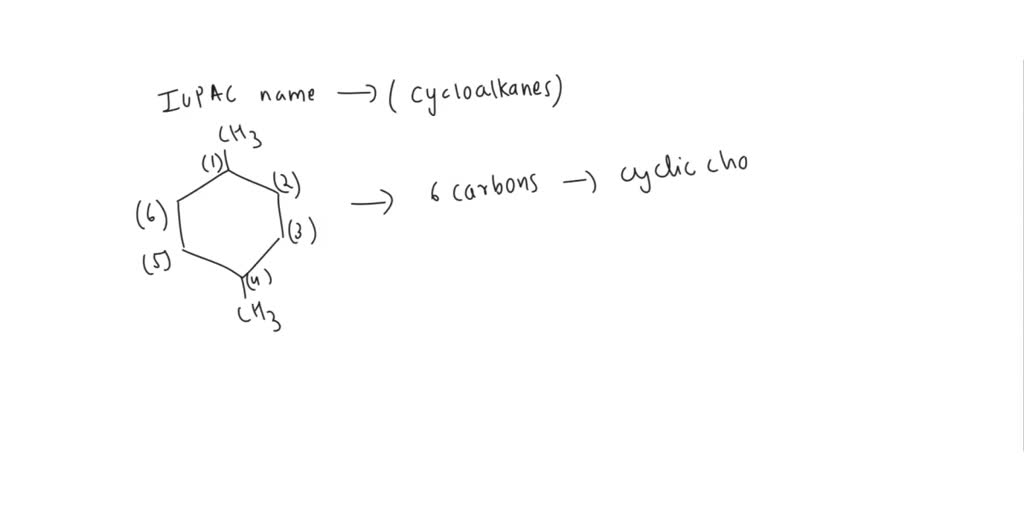 IUPAC name → (cycloalkanes)
CH3
(1)
(2)
(6)
→ 6 carbons → cyclic cha
(3)
(5)
(4)
CH3